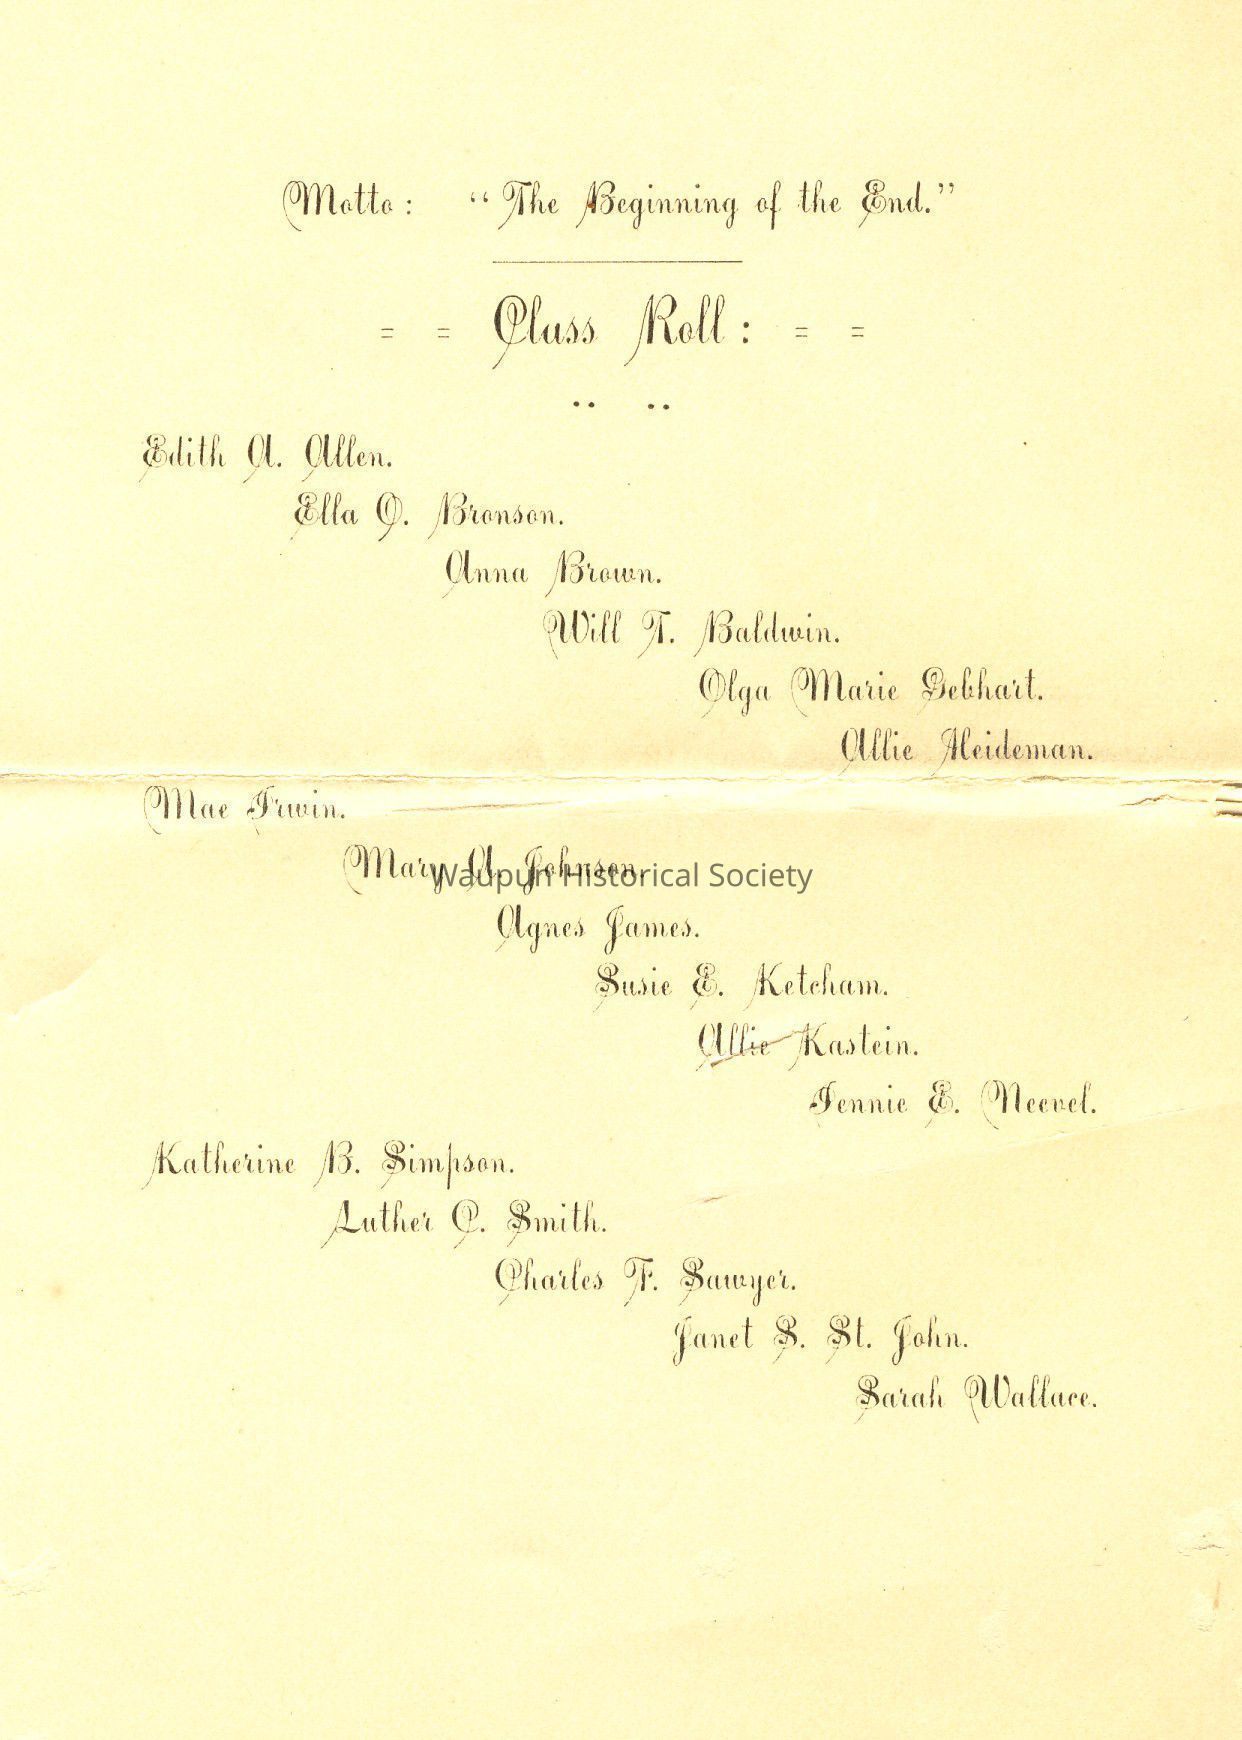 Motto: “The Beginning of the End.”
= = Class Roll: = =
Edith A. Allen.
Ella O. Bronson.
Anna Brown.
Will T. Baldwin.
Olga Marie Gebhart.
Allie Heideman.
Mae Irwin.
Mary A. Johnson.
Waupun Historical Society
Agnes James.
Susie E. Ketcham.
Allie Kastein.
Jennie E. Neevel.
Katherine B. Simpson.
Luther C. Smith.
Charles F. Sawyer.
Janet S. St. John.
Sarah Wallace.